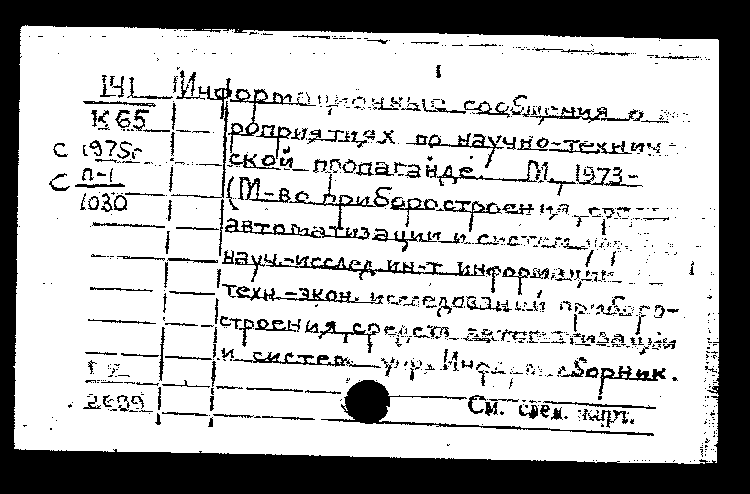 141 Информационные сообщения о
К 65 роприятиях по научно-технич-
с 1975г ской пропаганде. М., 1973-
С П-1 (М-во приборостроения, средств
1030 автоматизации и систем упр.
науч.-исслед. ин-т информации
техн.-экон. исследований приборо-
строения, средств автоматизации
и систем упр. Информ. сборник.
См. спец. карт.